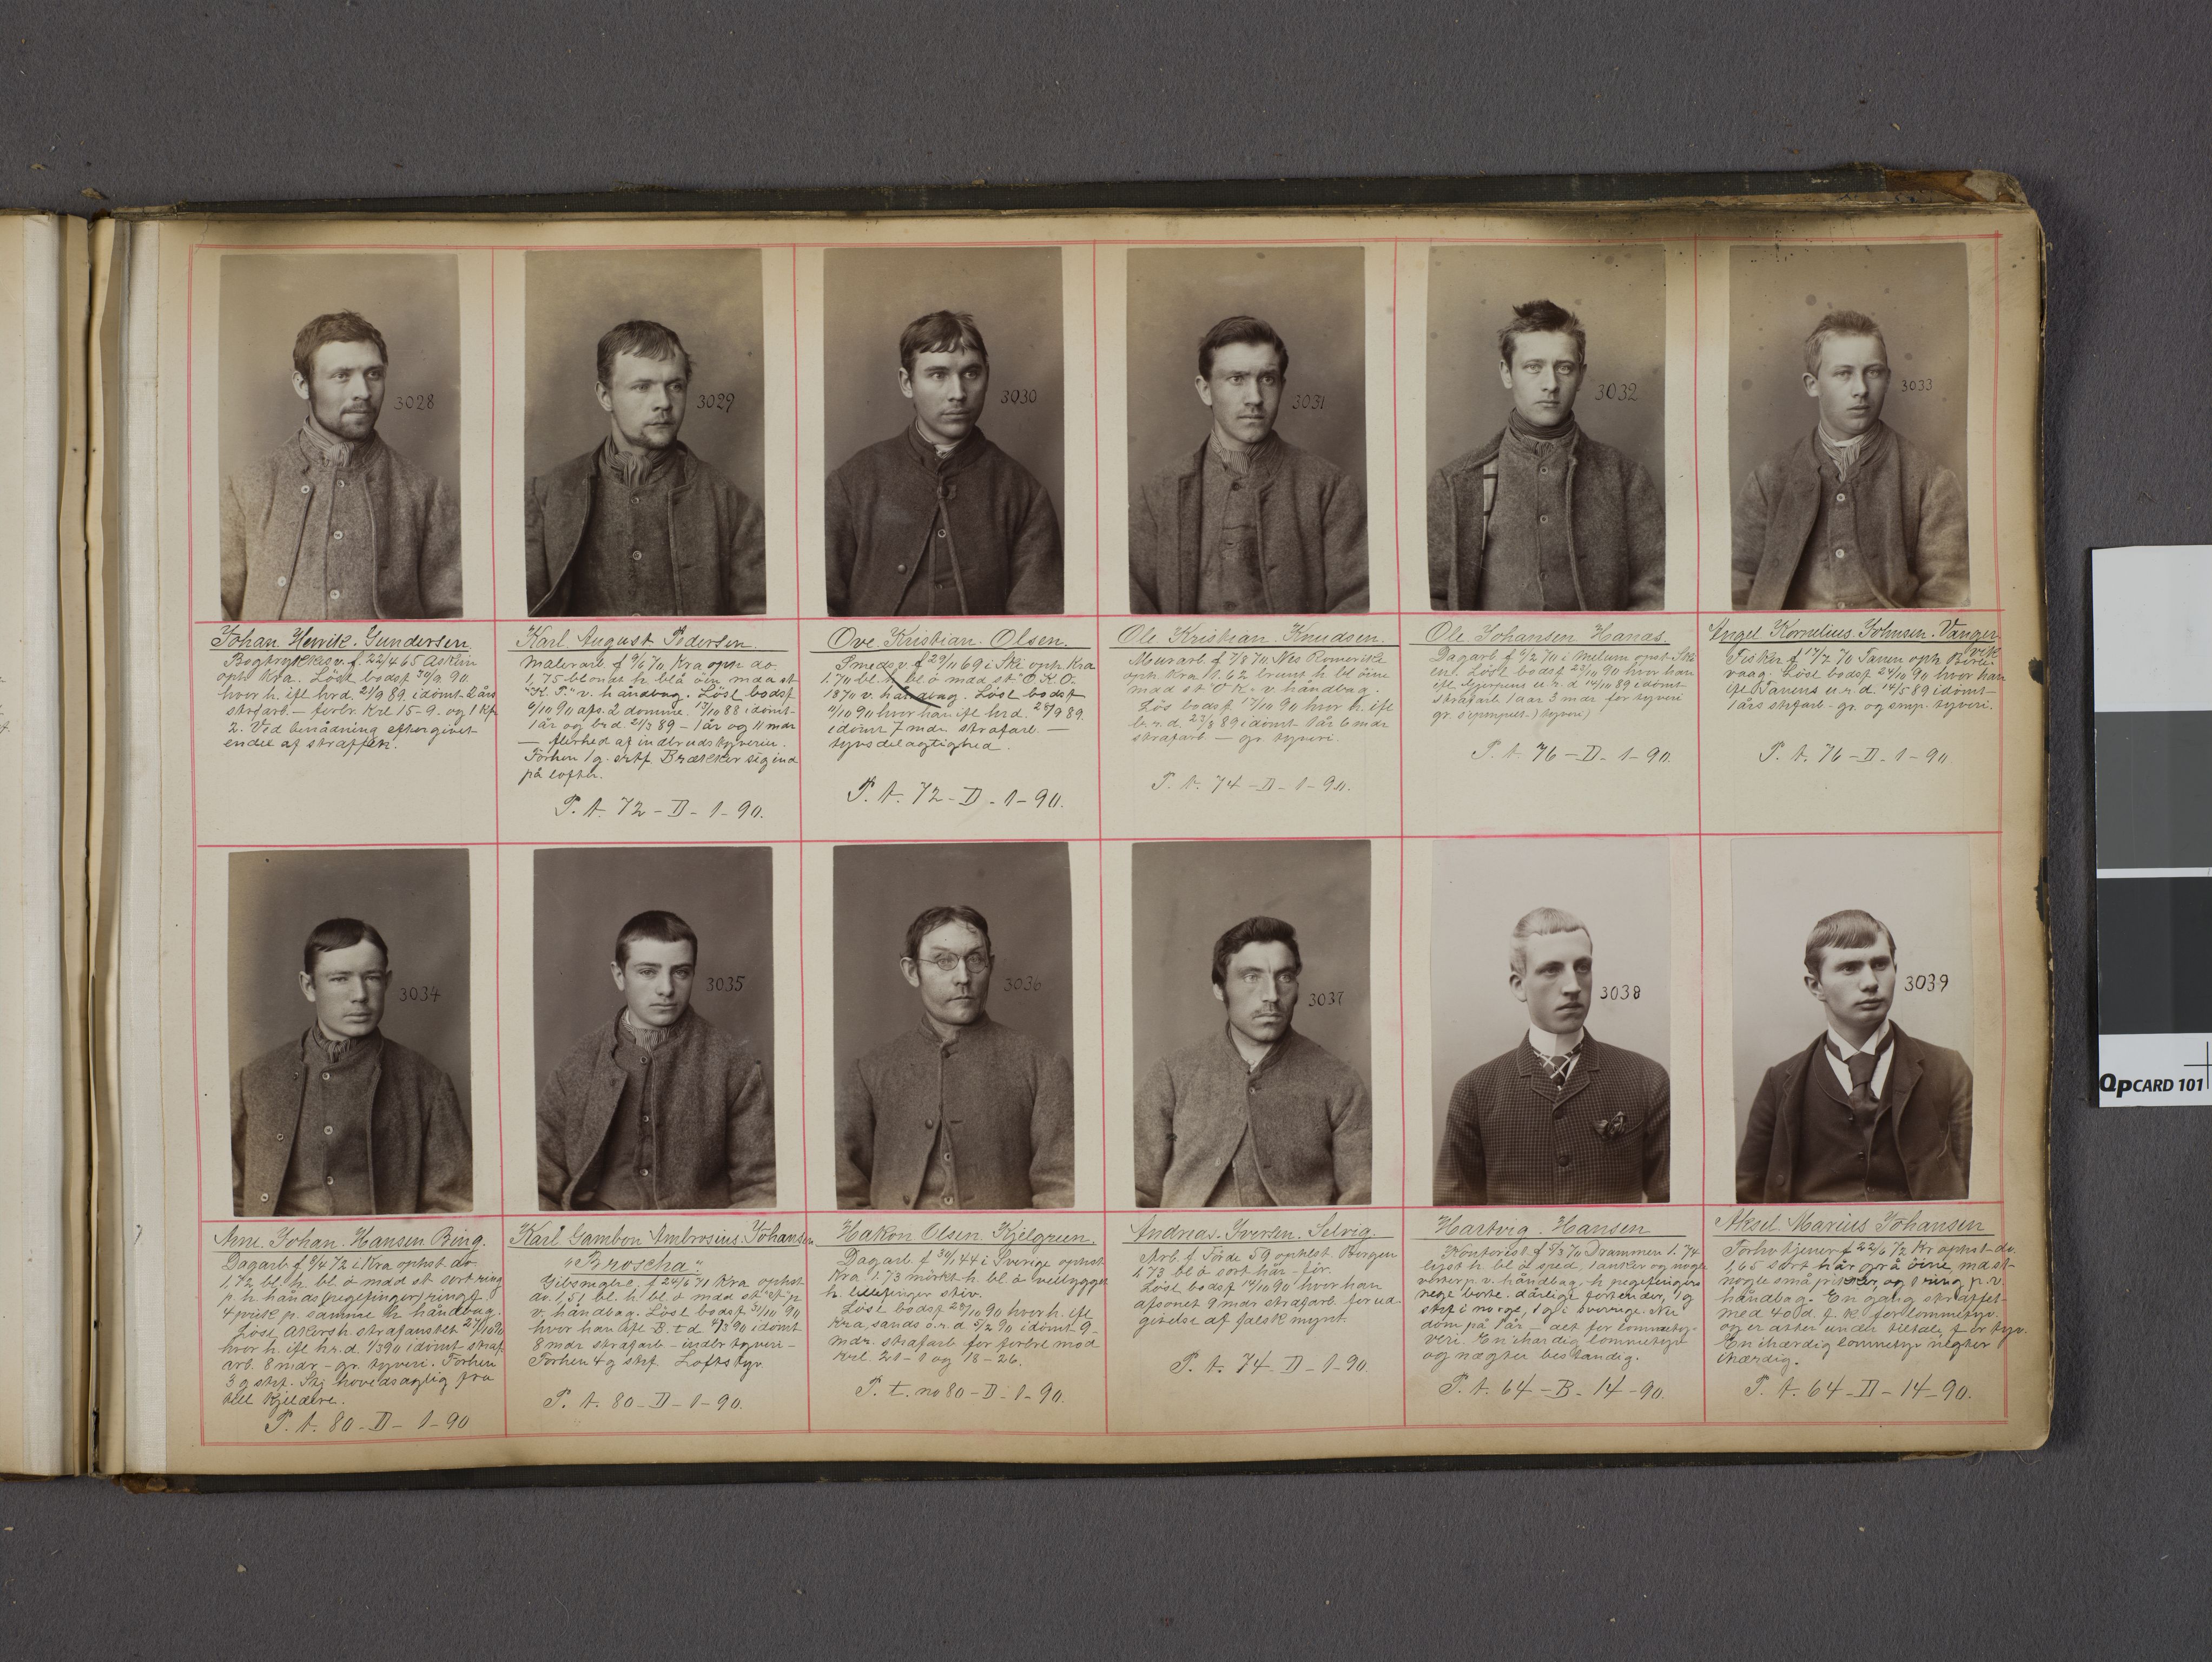 3028
3029
3030
3031
3032
3033
Johan Henrik Gundersen.
Bogtrykkersv. f. 22/4 65 Askim
oph. Kra. Löst bodsf 30/9 90
hvor h. ifl hrd. 21/9 89 idömt 2 års
strfarb. — forbr. Krl 15-9. og 1 kp
2. Ved benådning eftergivet
endel af straffen.
Karl August Pedersen.
Malerarb. f 9/6 70 Kra oph do.
1,75 blondt h. blå öin mda st
"K. P." v. håndbag. Löst bodsf
6/10 90 afs. 2 domme. 13/10 88 idömt
1 år og brd. 21/3 89 — 1 år og 11 mdr
— flerhed af indbrudstyverier.
Forhen 1 g. strf. Brækker sig ind
på lofter.
P. t. 72 - D - 1 - 90.
Ove Kristian Olsen.
Smedsv. f 29/11 69 i Ski oph. Kra
1.70 bl. h bl ö mdd st "O. K. O.
1870 v. håndbag. Löst bodsf
11/10 90 hvor han ifl hrd. 28/9 89.
idömt 7 mdr. strafarb. —
tyvsdelagtighed.
P. t. 72 - D - 1 - 90.
Ole Kristian Knudsen.
Murarb. f 7/8 70 Nes Romerike
oph. Kra 1. 62 brunt h. bl öine
mdd st "O K" v. håndbag.
Lös bodsf 17/10 90 hvor h. ifl
b. r. d. 23/8 89 idömt 1 år 6 mdr
strafarb — gr. tyveri.
P. t. 74 - D - 1 - 90.
Ole Johansen Hanäs
Dagarb f 6/2 70 i Melum opst Ski
en. Löst bodsf 22/10 90 hvor han
ifl Gjerpens e. r. d 14/10 89 idömt
strafarb 1 aar 3 mdr for tyveri
P. t. 76 - D - 1 - 90.
Angel Kornelius Johnsen Vanger
vik
Fisker f 17/7 70 Tanen oph.
vaag. Löst bodsf 24/10 90 hvor han
ifl Tanens e. r. d. 14/5 89 idömt
1 års strfarb - gr. og smp. tyveri.
P. t. 76 - D - 1 - 90
3034
3035
3036
3037
3038
3039
Johan Hansen Bing.
Dagarb f 9/4 72 i Kra ophst do
1,72 bl. h. bl ö mdd st sort ring
p. h. hånds (pegefinger) ring
4 prik p. samme h. håndbag.
Löst Akersh. strafanstlt 27/10 90
hvor h. ifl h r. d. 1/3 90 idömt straf
arb. 8 mdr. - gr. tyveri. Forhen
3 g strf. Stj hovedsaglig fra
kjeldere.
P. t. 80 - D - 1 - 90
Karl Gambon Ambrosius Johansen
"Broscha".
Gibsmager. f 24/6 71 Kra ophst
do. 1,51 bl. h. bl ö mdd st
v. håndbag. Löst bodsf 31/10 90
hvor han ifl B. t d 4/3 90 idömt
8 mdr strafarb — indbr tyveri —
Forhen 4 g strf. Loftstyv.
P. t. 80 - D - 1 - 90.
Hakon Olsen Kjelgreen.
Dagarb f 30/1 44 i Sverige ophst
Kra 1.73 mörkt h bl ö
h. lillefinger stiv.
Löst bodsf 28/10 90 hvor h. ifl
Kra. sands ö. r. d 5/2 90 idömt 9
mdr. strafarb for forbr. mod
Krl. 21 - 1 og 18 - 26.
P. t. no 80 - D - 1 - 90.
Andreas Iversen Selvig.
Arb. f Förde 59 ophlst. Bergen
1,73 bl ö sort hår - för
Löst bodsf 14/10 90 hvor han
afsonet 9 mdr strafarb. for ud-
givelse af falsk mynt.
P. t. 74 - D - 1 - 90.
Hartvig Hansen
Kontorist f 5/3 70 Drammen 1. 74
lyst h. bl ö sped, 1 anker og nogle
p. v. håndbag - h pegefingers
negl borte. därlige fortender, 1 g
strf i norge, 1 g i sverrige. Nu
dom på 1 år — alt for lommety-
veri. En ihärdig lommetyv
og nægter bestandig.
P. t. 64 - B - 14 - 90.
Aksel Marius Johansen
Forhv tjener f 22/6 72 Kr ophst do.
1,65 sort hår grå öine, md st
nogle små prikker, og 1 ring p. v.
håndbag. En gang straffet
med 40 d. f. k. for lommetyv.
og er atter under tiltale for tyv.
En ihærdig lommetyv nægter
ihærdig.
P. t. 64 - D - 14 - 90.
QPCARD 101